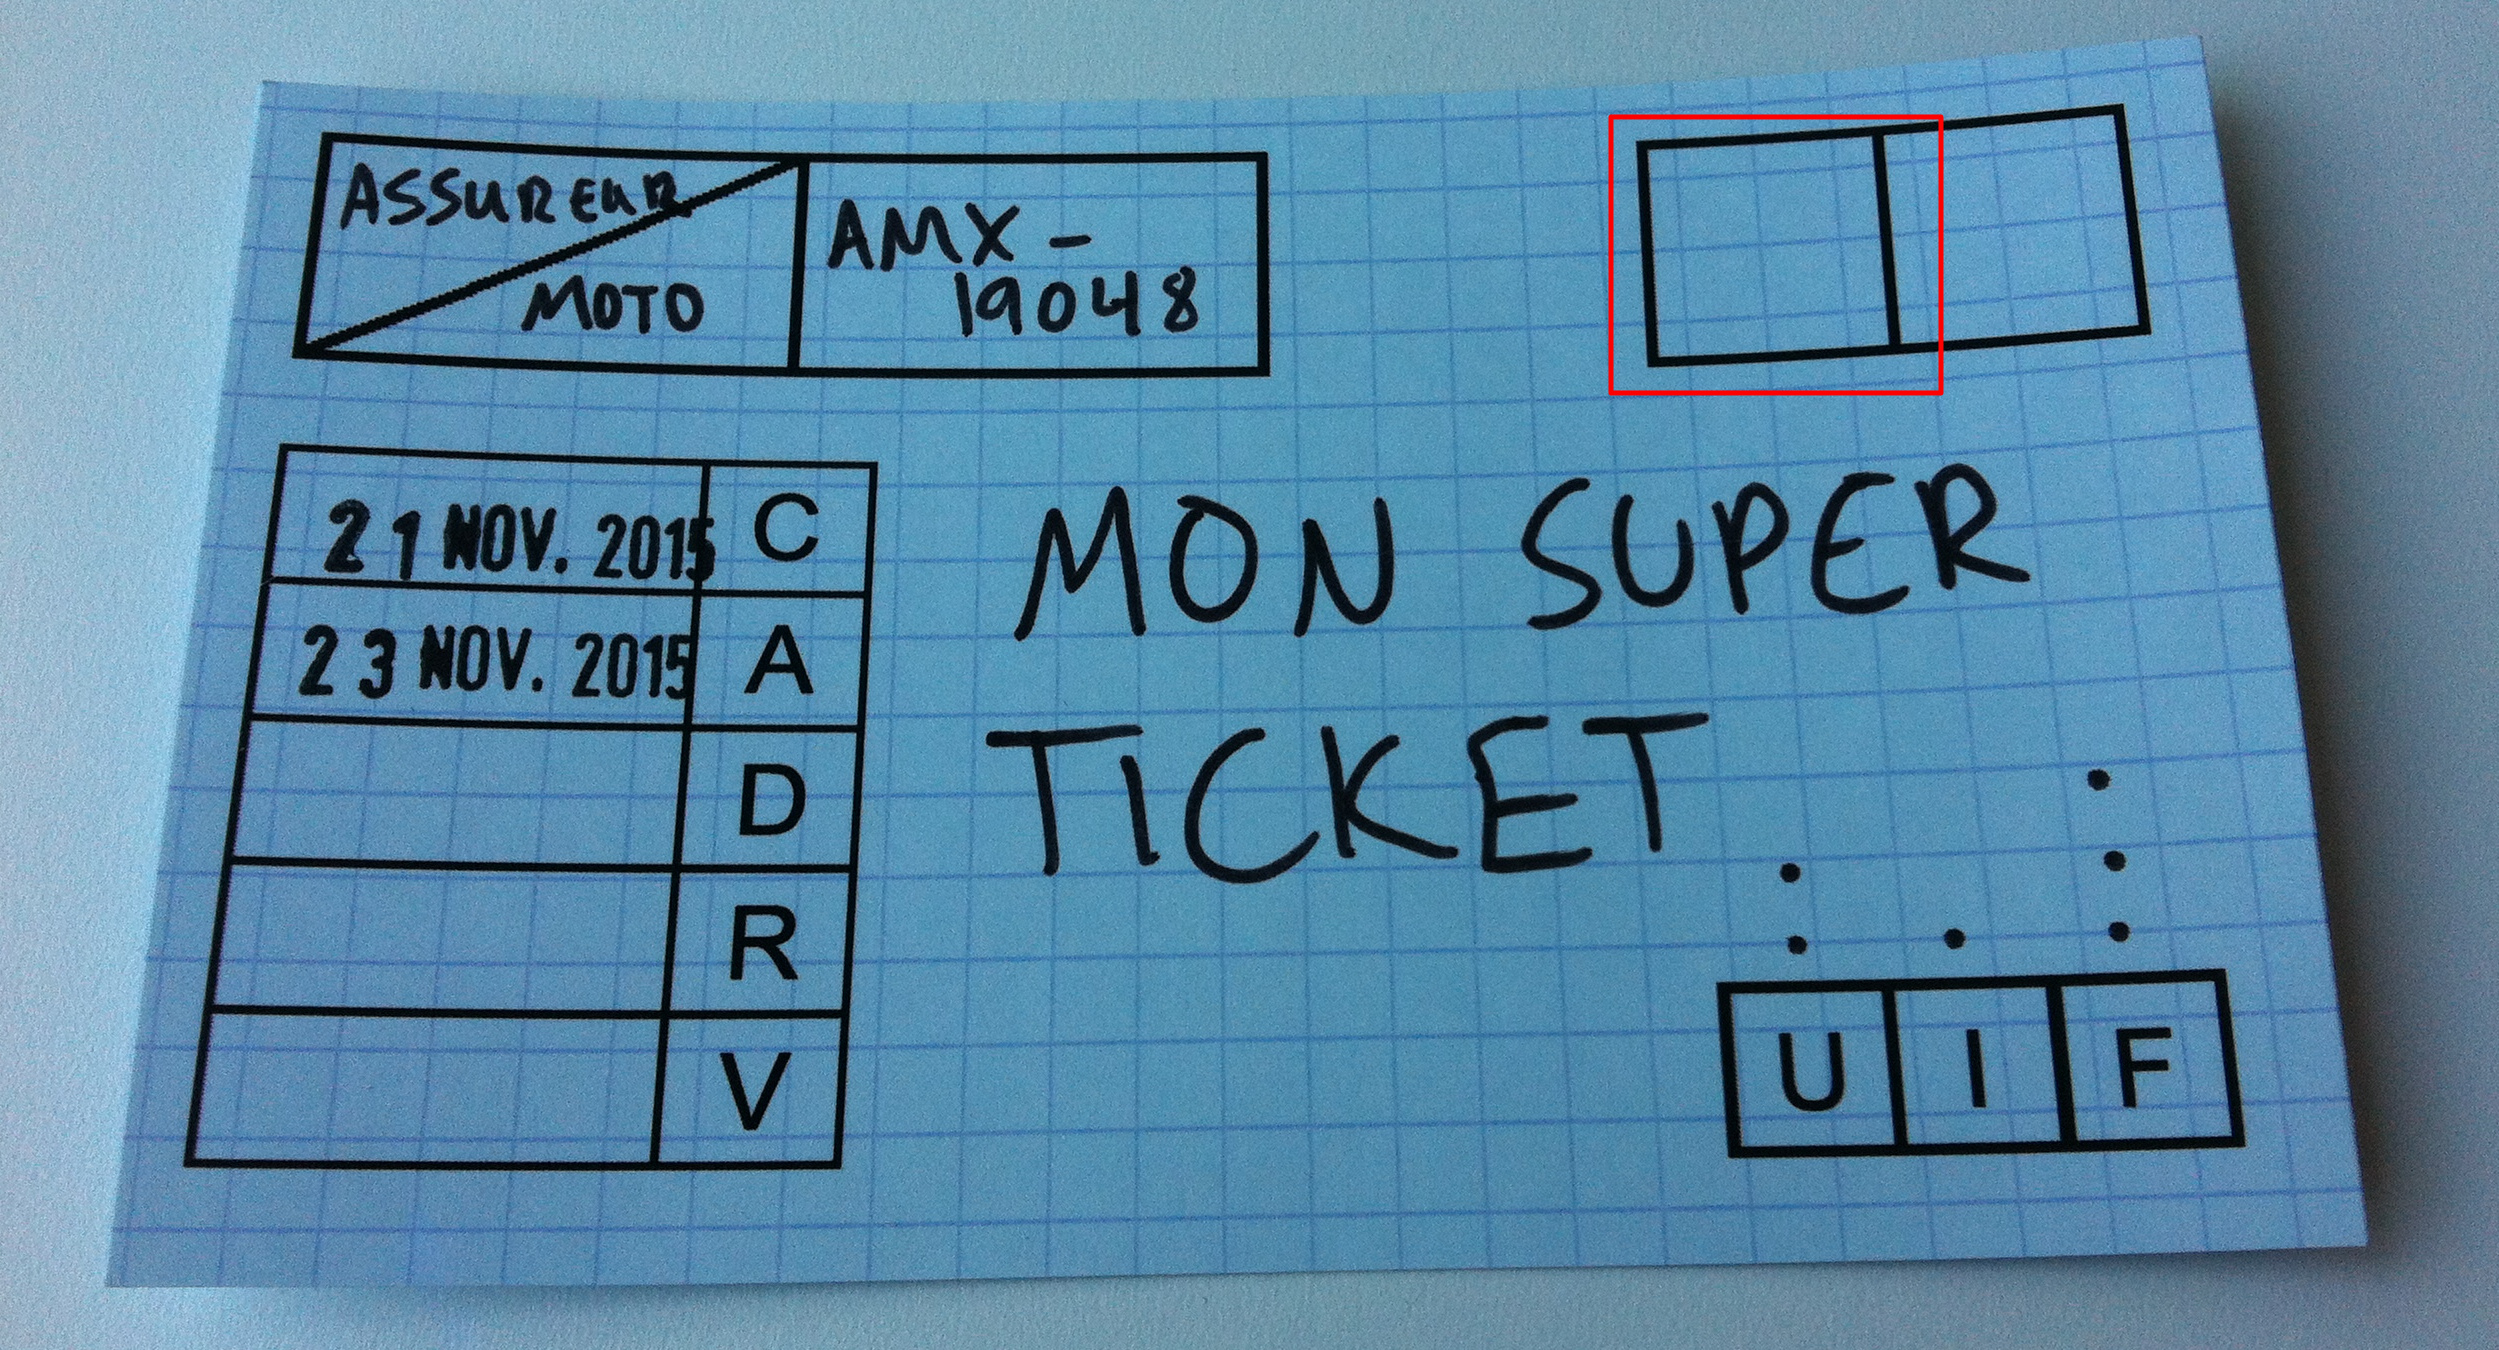 ASSUREUR
MOTO
AMX-
19048
21 NOV. 2015 C
23 NOV. 2015 A
D
R
V
MON SUPER
TICKET
U I F